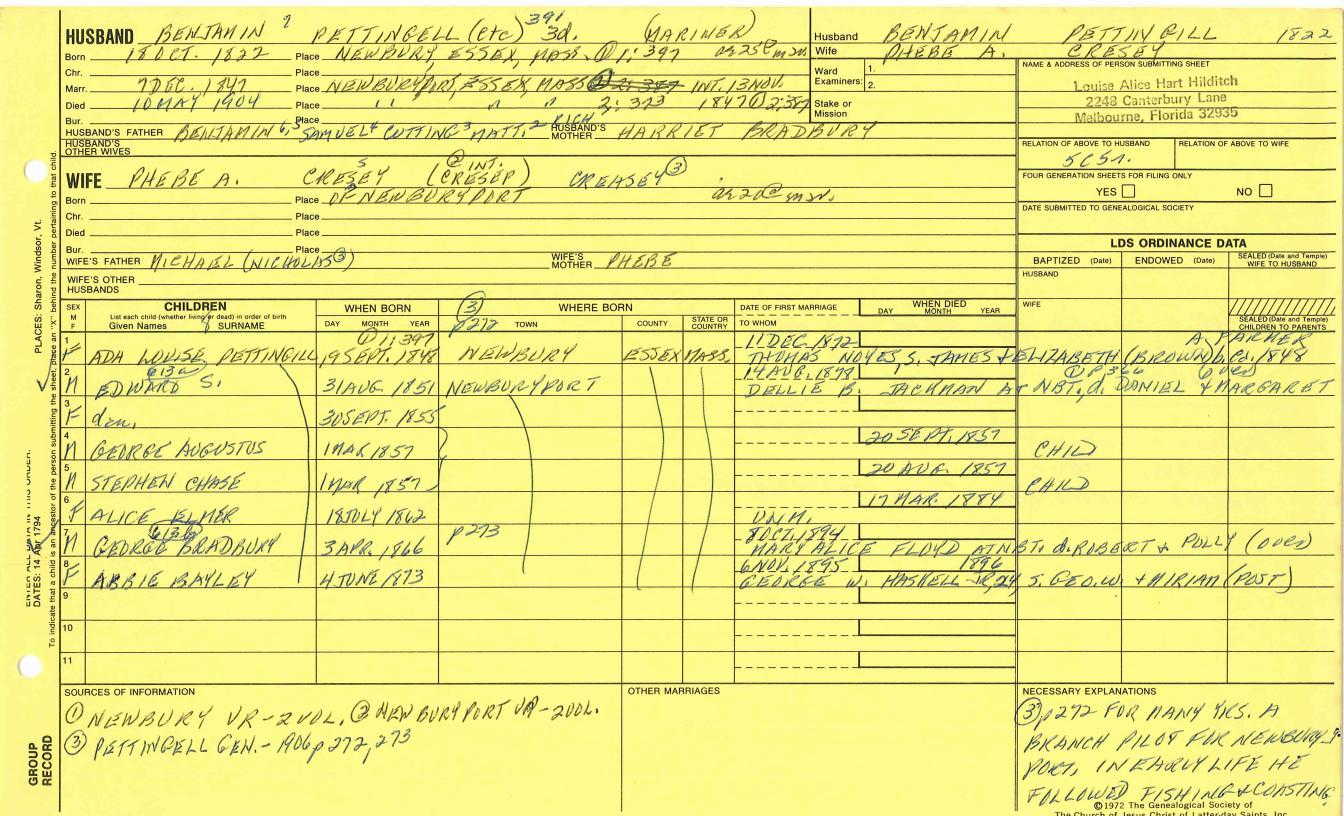 HUSBAND BENJAMIN 7 PETTINGELL (etc) 391 3d. (MARINER)
Born 18 OCT. 1822 Place NEWBURY, ESSEX, MASS. ① 1: 397
Chr. Place
Marr. 7 DEC. 1847 Place NEWBURYPORT, ESSEX, MASS INT. 13 NOV.
Died 10 MAY 1904 Place " " " 2: 323 1847 ② 2:387
Bur. Place
HUSBAND'S FATHER BENJAMIN 6,5 SAMUEL 4 CUTTING 3 MATT. 2 RICH. HUSBAND'S MOTHER HARRIET BRADBURY
HUSBAND'S OTHER WIVES
WIFE PHEBE A. CRESEY (② INT. CRESEP) CREASEY ③
Born Place OF NEWBURYPORT
Chr. Place
Died Place
Bur. Place
WIFE'S FATHER MICHAEL (NICHOLAS ③) WIFE'S MOTHER PHEBE
WIFE'S OTHER HUSBANDS
Husband BENJAMIN PETTINGILL 1822
Wife PHEBE A. CRESEY
Ward Examiners: 1. 2.
Stake or Mission
NAME & ADDRESS OF PERSON SUBMITTING SHEET
Louise Alice Hart Hilditch
2248 Canterbury Lane
Melbourne, Florida 32935
RELATION OF ABOVE TO HUSBAND RELATION OF ABOVE TO WIFE
FOUR GENERATION SHEETS FOR FILING ONLY
YES NO
DATE SUBMITTED TO GENEALOGICAL SOCIETY
LDS ORDINANCE DATA
BAPTIZED (Date) ENDOWED (Date) SEALED (Date and Temple) WIFE TO HUSBAND
HUSBAND
WIFE
SEALED (Date and Temple) CHILDREN TO PARENTS
SEX M F CHILDREN List each child (whether living or dead) in order of birth Given Names SURNAME
WHEN BORN DAY MONTH YEAR
③ p272 WHERE BORN TOWN COUNTY STATE OR COUNTRY
DATE OF FIRST MARRIAGE TO WHOM
WHEN DIED DAY MONTH YEAR
① 1: 397
1 F ADA LOUISE PETTINGILL 19 SEPT. 1848 NEWBURY ESSEX MASS. 11 DEC. 1872 A. PARKER
THOMAS NOYES, S. JAMES & ELIZABETH (BROWN) b. ca. 1848
2 M EDWARD S. 31 AUG. 1851 NEWBURYPORT (over)
DELLIE B. JACKMAN AT NBT. d. DANIEL & MARGARET
3 F dau. 30 SEPT. 1855
4 M GEORGE AUGUSTUS 1 MAR 1857 20 SEPT. 1857 CHILD
5 M STEPHEN CHASE 1 MAR 1857 20 AUG. 1857 CHILD
6 F ALICE ELMER 18 JULY 1862 17 MAR. 1884
UNM.
7 M GEORGE BRADBURY 3 APR. 1866 p273 8 OCT. 1894
MARY ALICE FLOYD AT NBT. d. ROBERT & POLLY (over)
8 F ABBIE BAYLEY 4 JUNE 1873 6 NOV. 1895 1896
GEORGE W. HASKELL JR, 24 S. GEO. W. & MIRIAM (POST)
9
10
11
SOURCES OF INFORMATION
① NEWBURY VR-2VOL. ② NEWBURYPORT VR-2VOL.
③ PETTINGELL GEN.-1906 p272, 273
OTHER MARRIAGES
NECESSARY EXPLANATIONS
③ p272 FOR MANY YRS. A
BRANCH PILOT FOR NEWBURY-
PORT, IN EARLY LIFE HE
FOLLOWED FISHING & COASTING
©1972 The Genealogical Society of
The Church of Jesus Christ of Latter-day Saints, Inc.
PLACES: Sharon, Windsor, Vt.
DATES: 14 Apr 1794
GROUP RECORD